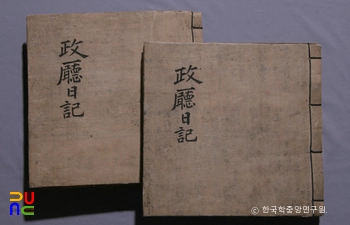 政廳日記
政廳日記
ⓒ 한국학중앙연구원